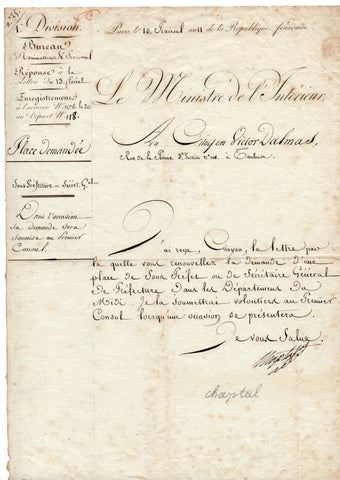 1. Division.
Bureau
Réponse à la
Lettre du 13 floréal
Enregistrement
à l'arrivée N.° 175. le 20
au Départ N.° 118.
Place demandée
Sous Préfecture ou Secrét. G.al
Dans l'occasion
sa demande sera
soumise au Premier
Consul.
Paris, le
an 11 de la République française.
Le Ministre de l'Intérieur,
Au Citoyen Victor Dalmas,
Rue de la
à Toulouse
J'ai reçu, Citoyen, la lettre par
la quelle vous renouvellez la demande d'une
place de Sous Préfet ou de Sécrétaire Général
de Préfecture dans les Départemens du
Midi. Je la soumettrai volontiers au Premier
Consul lorsqu'une occasion se présentera.
Je vous Salue,
chaptal